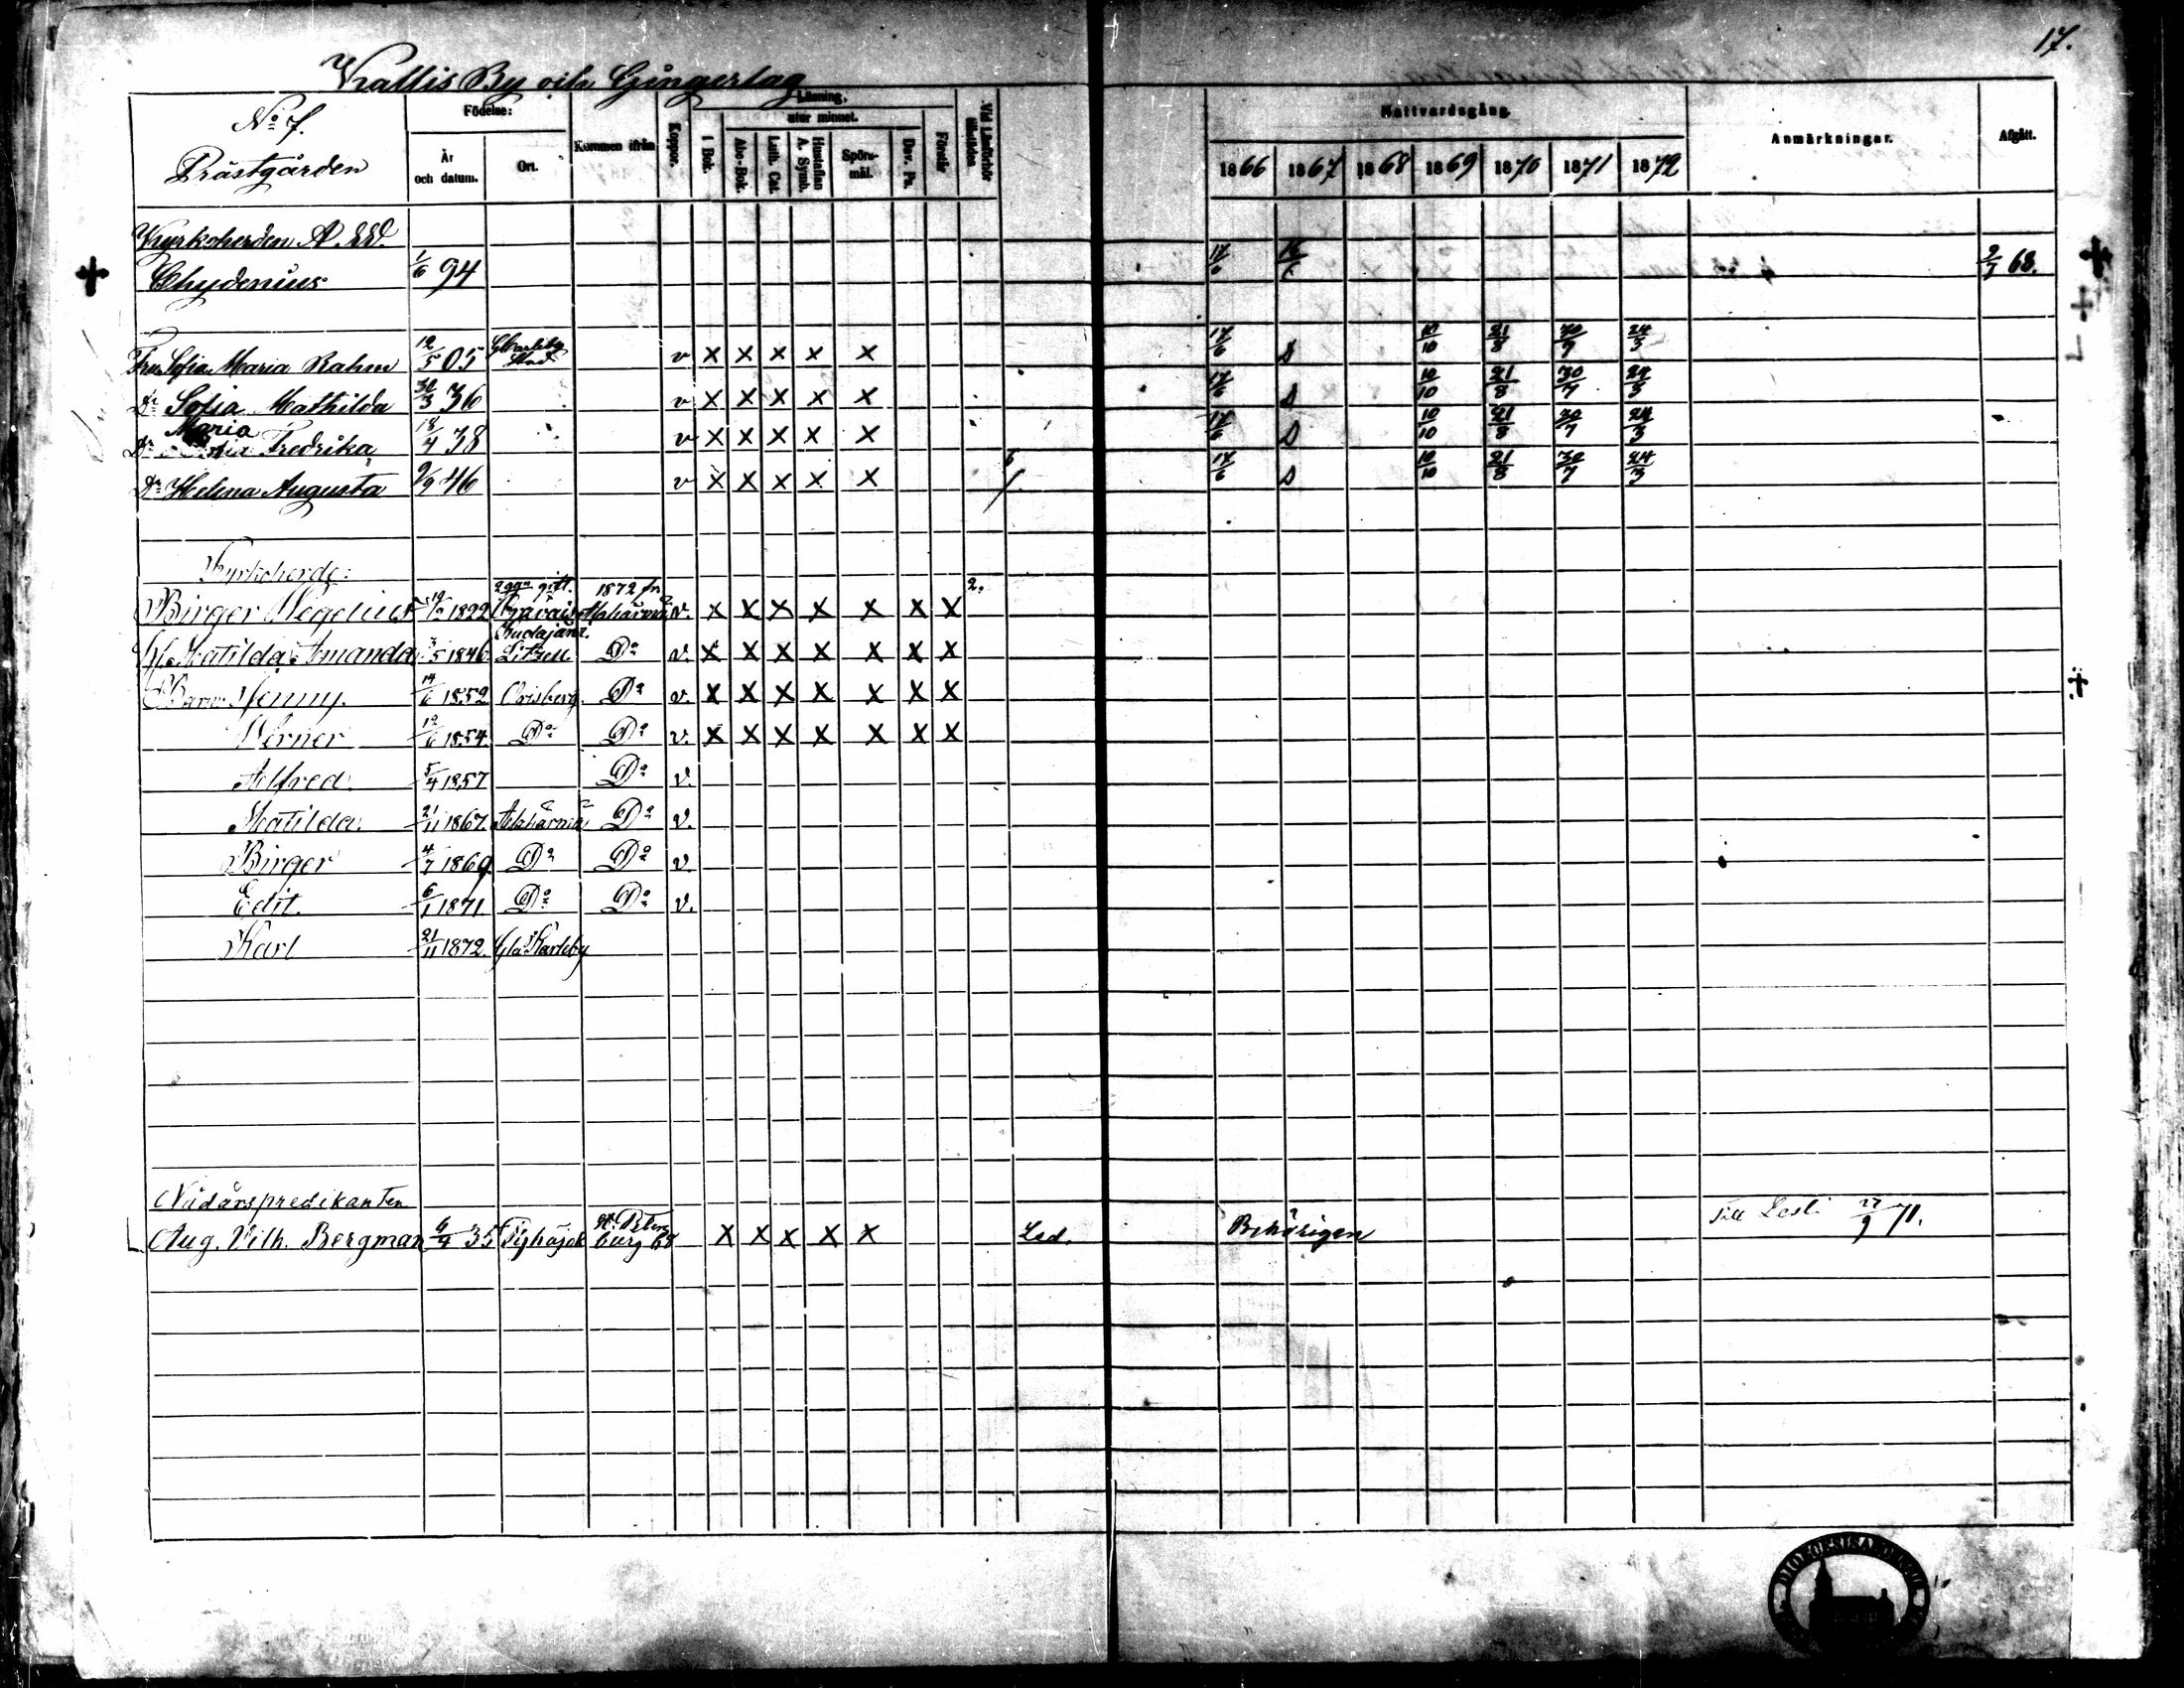 17.
Kallis By och Gångerlag
No 7.
Prästgården
Födelse:
År och datum.
Ort.
Kommen ifrån
Koppor.
Läsning,
I Bok.
utur minnet.
Abc-Bok.
Luth. Cat.
Hustaflan A. Symb.
Spörs-mål.
Dav. Ps.
Förstår
Vid Läseförhör tillstädes
Nattvardsgång
1866 1867 1868 1869 1870 1871 1872
Anmärkningar.
Afgått.
Kyrkoherden A. W.
Chydenius 1/6 94 17/6 16/6 2/7 68.
Fru Sofia Maria Rahm 12/5 05 GKarleby Stad v x x x x x 17/6 s 10/10 21/8 30/7 24/3
Dr Sofia Mathilda 30/3 36 v x x x x x 17/6 s 10/10 21/8 30/7 24/3
Maria
Dr Fredrika 18/4 38 v x x x x x 17/6 s 10/10 21/8 30/7 24/3
Dr Helena Augusta 9/9 46 v x x x x x 17/6 s 10/10 21/8 30/7 24/3
Kyrkoherde:
2 ggr gift. 1872 fr. 2.
Birger Wegelius 1822 Alahärmä v. x x x x x x x
H. Matilda Amanda 1846 Do v. x x x x x x x
Barn: Jenny. 14/6 1852 Do v. x x x x x x x
Verner 12/6 1854. Do Do v. x x x x x x x
Alfred. 5/4 1857 Do v.
Matilda. 21/11 1867. Alahärmä Do v.
Birger 4/7 1869 Do Do v.
Edit. 6/1 1871 Do Do v.
Karl 21/11 1872. Gla Karleby
Nådårspredikanten
Aug. Vilh. Bergman 6/9 35 St. Petersburg 68 x x x x x Led. Behörigen Till 27/9 71.